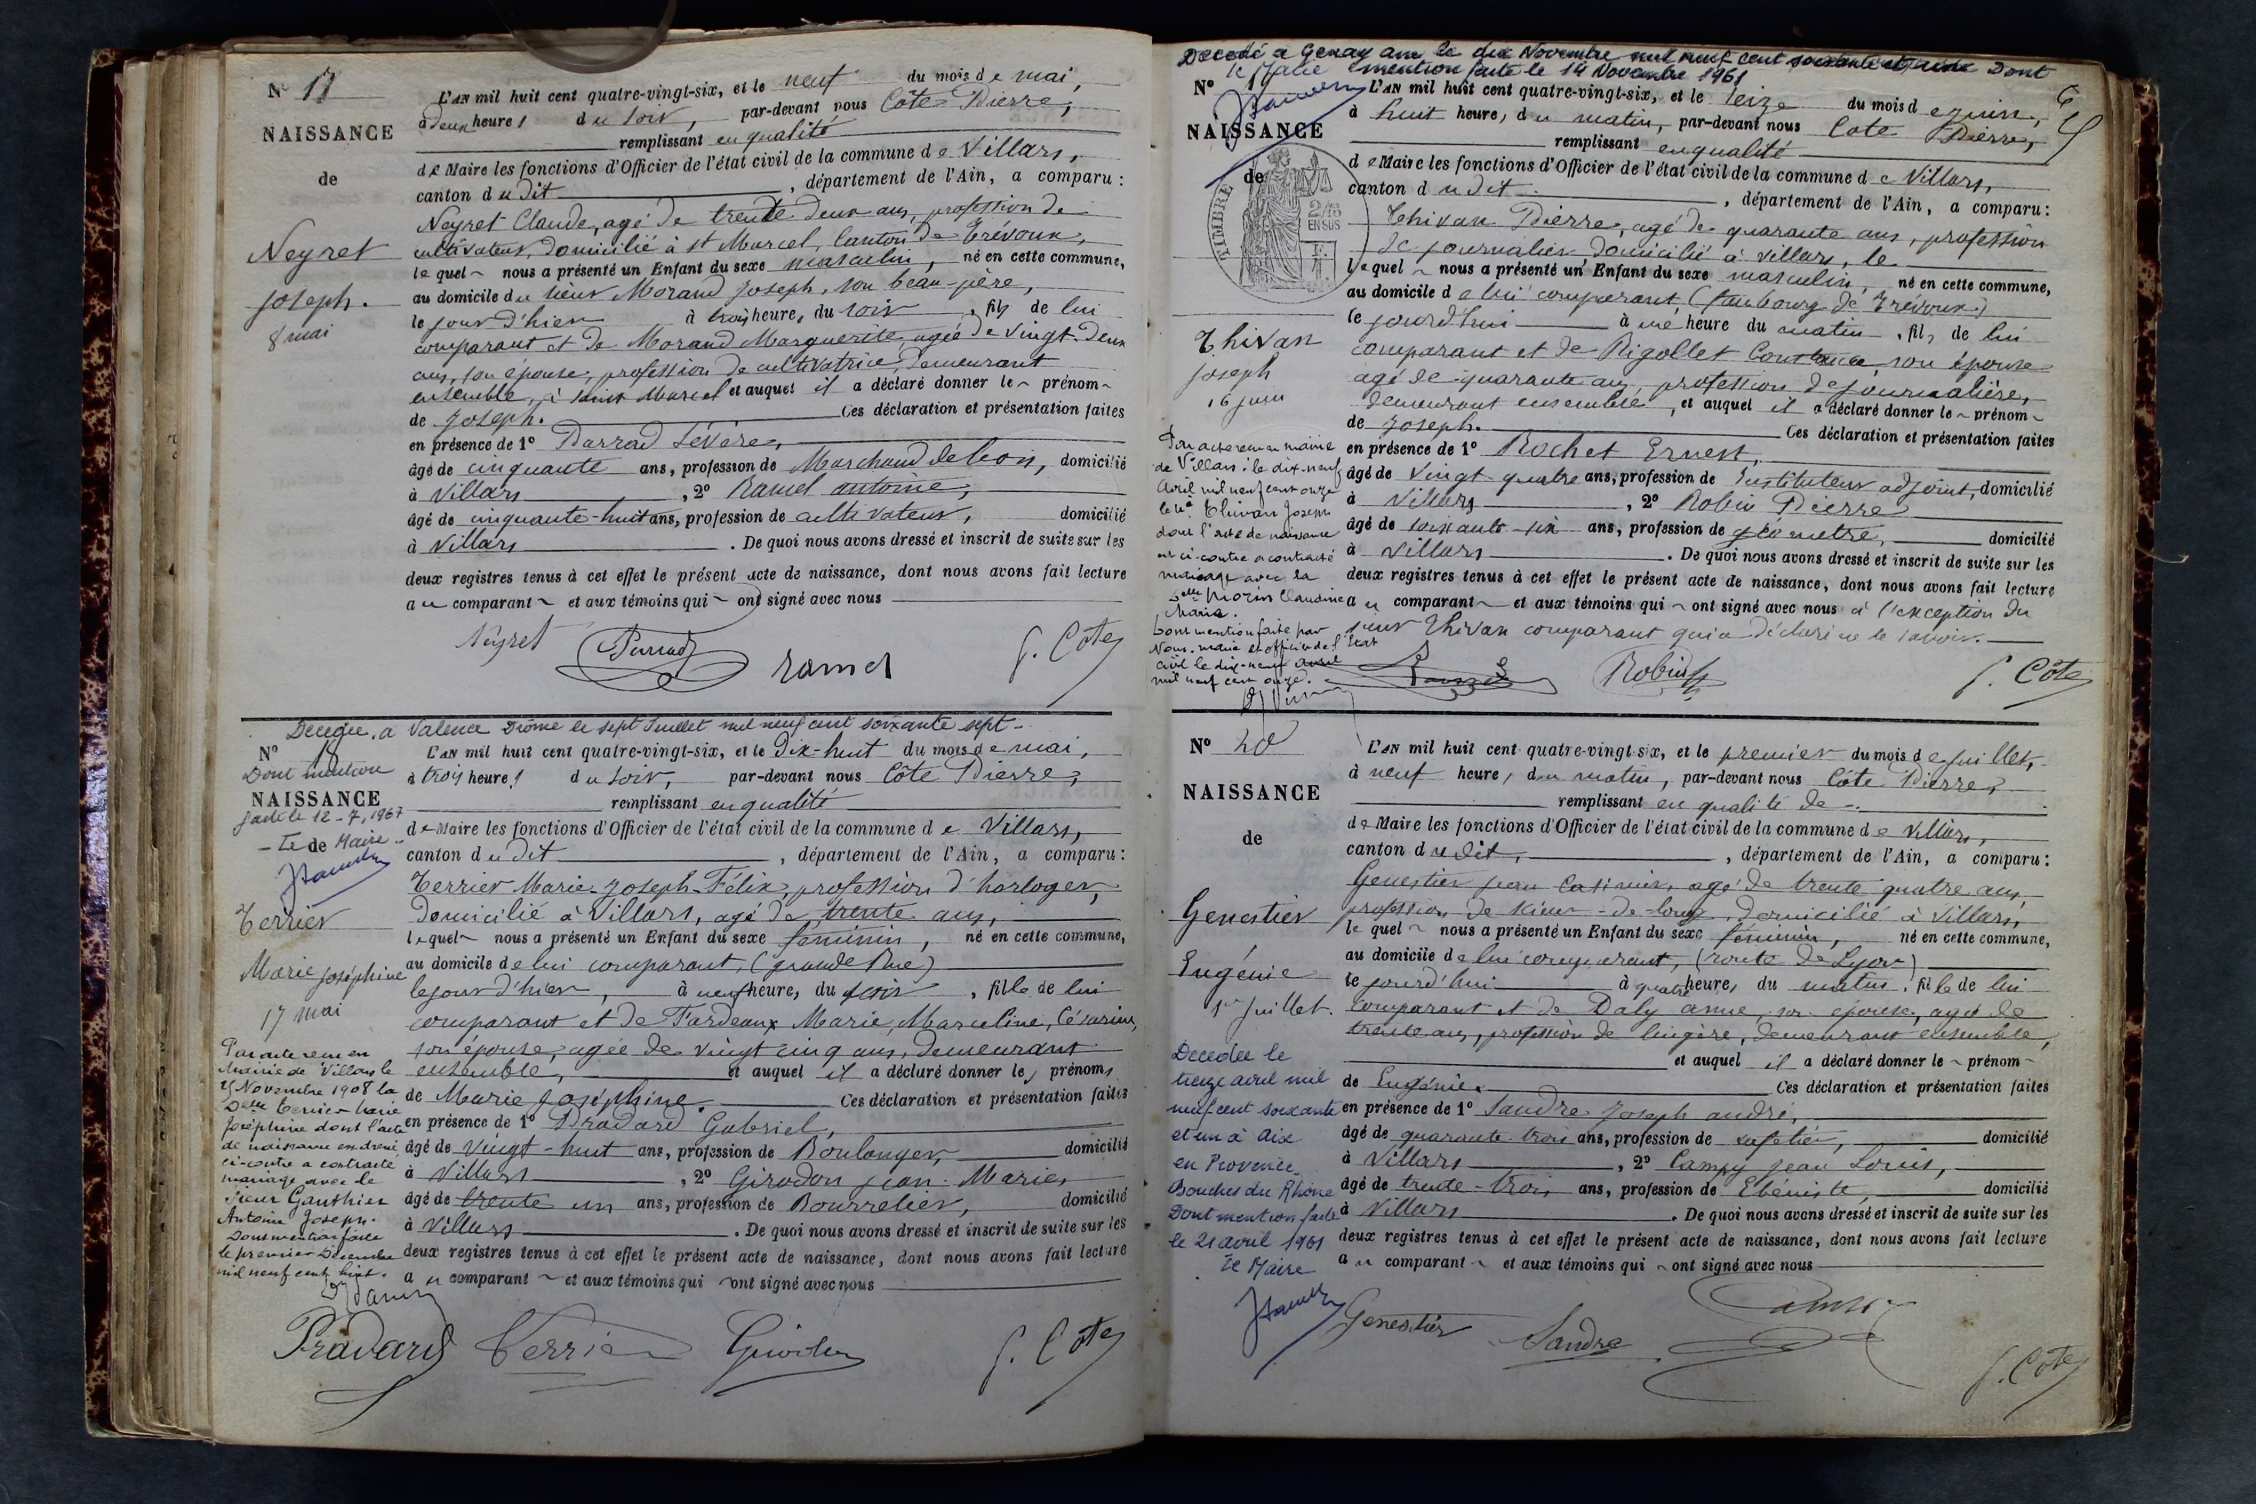 N° 17
NAISSANCE
de
Neyret
Joseph.
8 mai
L'AN mil huit cent quatre-vingt-six, et le neuf du mois de mai,
à deux heures du soir, par-devant nous Côte Pierre,
remplissant en qualité
de Maire les fonctions d'Officier de l'état civil de la commune de Villars,
canton du dit, département de l'Ain, a comparu :
Neyret Claude, agé de trente deux ans, profession de
cultivateur, domicilié à st Marcel, Canton de Trévoux,
lequel nous a présenté un Enfant du sexe masculin, né en cette commune,
au domicile du sieur Morand Joseph, son beau-père,
le jour d'hier à trois heures, du soir, fils de lui
comparant et de Morand Marguerite, agée de vingt-deux
ans, son épouse, profession de cultivatrice, demeurant
ensemble, à saint Marcel et auquel il a déclaré donner le prénom
de Joseph. Ces déclaration et présentation faites
en présence de 1° Sévère,
âgé de cinquante ans, profession de Marchand de bois, domicilié
à Villars, 2° Ramel antoine,
âgé de cinquante-huit ans, profession de cultivateur, domicilié
à Villars. De quoi nous avons dressé et inscrit de suite sur les
deux registres tenus à cet effet le présent acte de naissance, dont nous avons fait lecture
au comparant et aux témoins qui ont signé avec nous
Neyret
ramel
P. Côte
Decedee a Valence Drôme le sept Juillet mil neuf cent soixante sept
N° 18
Dont mention
NAISSANCE
faite le 12-7, 1967
Le de Maire
Terrier
Marie Joséphine
17 mai
Par acte recu en
mairie de Villars le
Novembre 1908 la
Delle Terrier Marie
Joséphine dont l'acte
de naissance est dressé
ci-contre a contracté
mariage avec le
sieur Gauthier
Antoine Joseph.
Dont mention faite
le premier Décembre
mil neuf cent huit.
L'AN mil huit cent quatre-vingt-six, et le dix-huit du mois de mai,
à trois heures du soir, par-devant nous Côte Pierre,
remplissant en qualité
de Maire les fonctions d'Officier de l'état civil de la commune de Villars,
canton du dit, département de l'Ain, a comparu :
Terrier Marie-Joseph-Félix, profession d'horloger,
domicilié à Villars, agé de trente ans,
lequel nous a présenté un Enfant du sexe féminin, né en cette commune,
au domicile de lui comparant, (grande Rue)
le jour d'hier, à neuf heures, du soir, fille de lui
comparant et de Fardeaux Marie, Marceline, Césarine,
son épouse, agée de vingt cinq ans, demeurant
ensemble, et auquel il a déclaré donner les prénoms
de Marie Joséphine. Ces déclaration et présentation faites
en présence de 1° Pradard Gabriel,
âgé de vingt-huit ans, profession de Boulanger, domicilié
à Villars, 2° Girodon jean-Marie,
âgé de trente un ans, profession de Bourrelier, domicilié
à Villars. De quoi nous avons dressé et inscrit de suite sur les
deux registres tenus à cet effet le présent acte de naissance, dont nous avons fait lecture
au comparant et aux témoins qui ont signé avec nous
Pradard Terrier Girodon
P. Côte
Decedé a Genay ain le dix Novembre mil neuf cent soixante et un Dont
le Maire mention faite le 14 Novembre 1961
N° 19
NAISSANCE
de
TIMBRE
2/10 EN SUS
Thivan
Joseph
16 juin
Par acte recu en mairie
de Villars le dix-neuf
avril mil neuf cent onze
le sr Thivan Joseph
dont l'acte de naissance
est ci-contre a contracté
mariage avec la
Delle Morin Claudine
Maria.
Dont mention faite par
Nous, maire et officier de l'état
civil le dix-neuf avril
mil neuf cent onze.
L'AN mil huit cent quatre-vingt-six, et le seize du mois de juin,
à huit heures, du matin, par-devant nous Cote Pierre,
remplissant en qualité
de Maire les fonctions d'Officier de l'état civil de la commune de Villars,
canton du dit, département de l'Ain, a comparu :
Thivan Pierre, agé de quarante ans, profession
de journalier domicilié à Villars, le
lequel nous a présenté un Enfant du sexe masculin, né en cette commune,
au domicile de lui comparant (faubourg de Trévoux)
le jourd'hui à une heure du matin, fils de lui
comparant et de Rigollet Constance, son épouse
agé de quarante ans, profession de journalière,
demeurant ensemble, et auquel il a déclaré donner le prénom
de Joseph. Ces déclaration et présentation faites
en présence de 1° Rochet Ernest,
âgé de vingt quatre ans, profession de Instituteur adjoint, domicilié
à Villars, 2° Robin Pierre
âgé de soixante-six ans, profession de géomètre, domicilié
à Villars. De quoi nous avons dressé et inscrit de suite sur les
deux registres tenus à cet effet le présent acte de naissance, dont nous avons fait lecture
au comparant et aux témoins qui ont signé avec nous à l'exception du
sieur Thivan comparant qui a déclaré ne le savoir.
Robin
P. Côte
N° 20
NAISSANCE
de
Genestier
Eugénie
1er Juillet.
Decedee le
treize avril mil
neuf cent soixante
et un à Aix
en Provence
Bouches du Rhône
Dont mention faite
le 21 avril 1961
Le Maire
L'AN mil huit cent quatre-vingt-six, et le premier du mois de juillet,
à neuf heures, du matin, par-devant nous Côte Pierre,
remplissant en qualité de
de Maire les fonctions d'Officier de l'état civil de la commune de Villars,
canton du dit, département de l'Ain, a comparu :
Genestier jean Casimir, agé de trente quatre ans,
profession de scieur-de-long, domicilié à Villars,
lequel nous a présenté un Enfant du sexe féminin, né en cette commune,
au domicile de lui comparant, (route de Lyon)
le jourd'hui à quatre heures, du matin, fille de lui
comparant et de Daly anne, son épouse, agé de
trente ans, profession de lingère, demeurant ensemble,
et auquel il a déclaré donner le prénom
de Eugénie. Ces déclaration et présentation faites
en présence de 1° Sandre Joseph andré,
âgé de quarante-trois ans, profession de cafetier, domicilié
à Villars, 2° Campy jean Louis,
âgé de trente-trois ans, profession de Ebéniste, domicilié
à Villars. De quoi nous avons dressé et inscrit de suite sur les
deux registres tenus à cet effet le présent acte de naissance, dont nous avons fait lecture
au comparant et aux témoins qui ont signé avec nous
Genestier Sandre
P. Côte